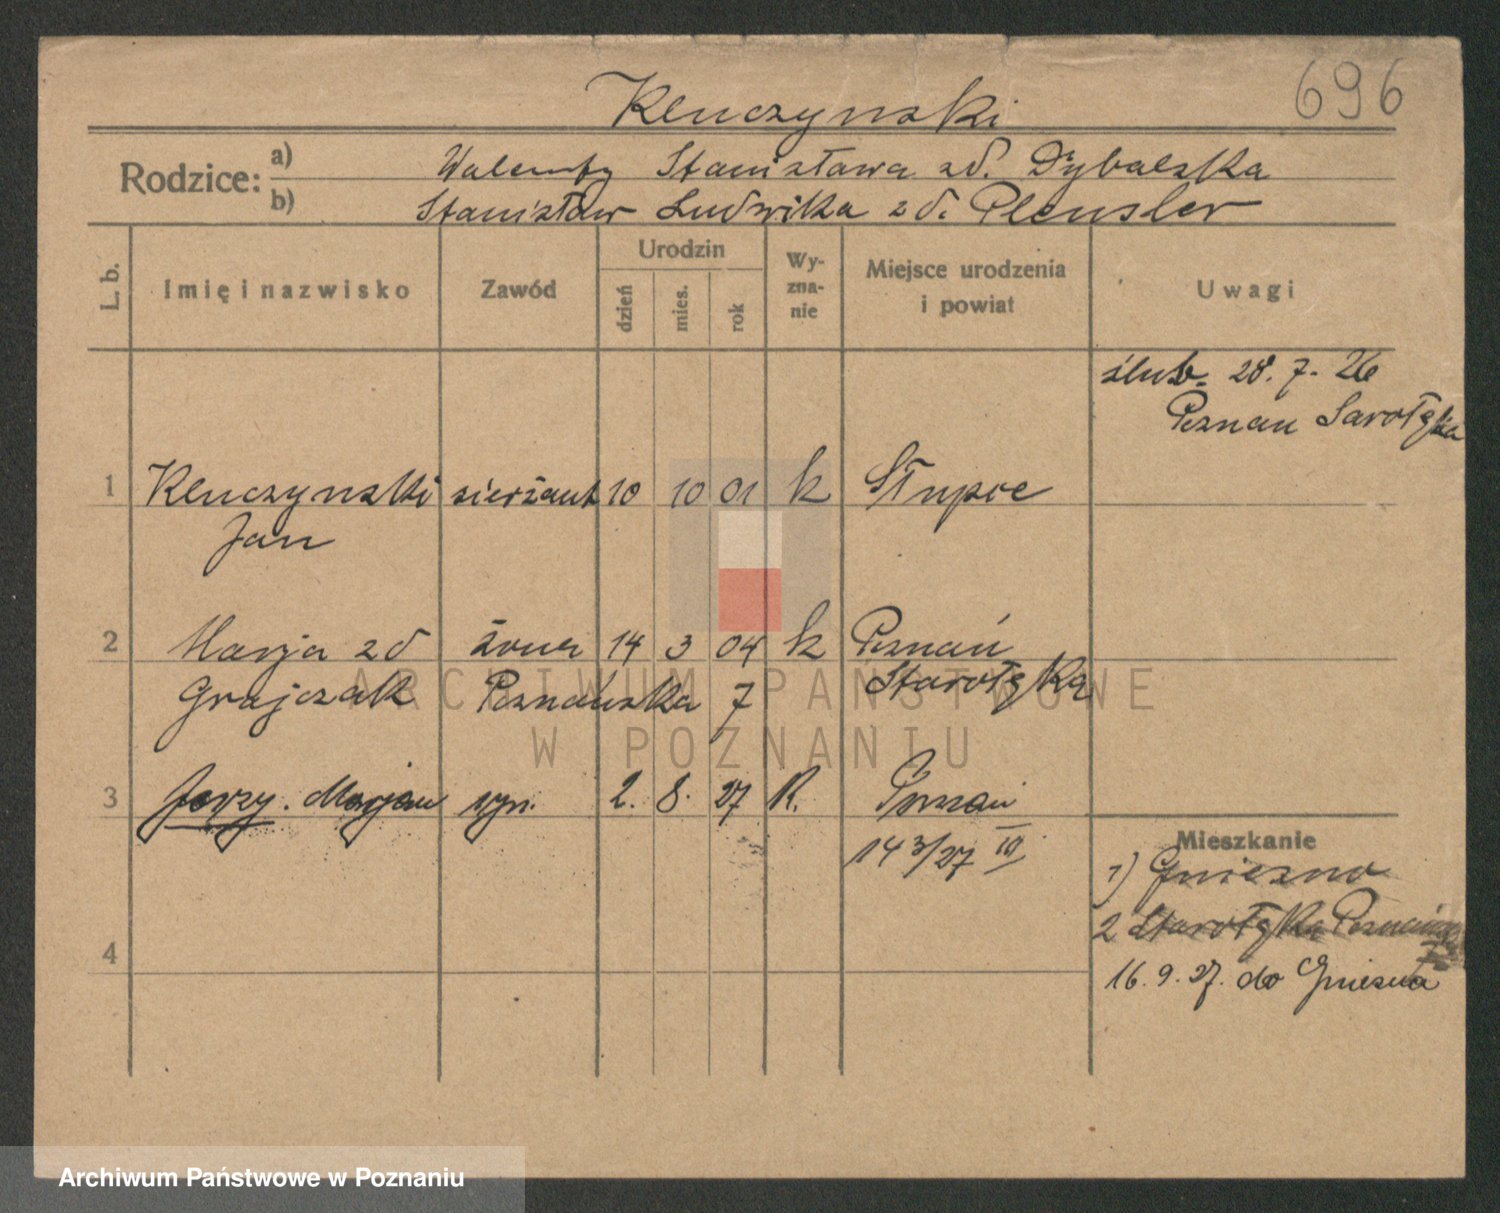 696
Kluczynski
Rodzice: a) Walenty Stanisława zd. Dybalska
b) Stanisław Ludwika zd. Plensler
L. b. Imię i nazwisko Zawód Urodzin dzień mies. rok Wyznanie Miejsce urodzenia i powiat Uwagi
ślub. 28. 7. 26
Poznan Sarołęka
1 Kluczynski sierżant 10 10 01 k Słupce
Jan
2 Marja zd żona 14 3 04 k Poznań
Grajczak Poznańska 7 Starołęka
3 Jerzy. Marjan syn. 2. 8. 27 R. Poznań
14 3/27 III
Mieszkanie
1) Gniezno
2 Starołęka Poznańska 7
4
16. 9. 27. do Gniezna
ARCHIWUM PAŃSTWOWE
W POZNANIU
Archiwum Państwowe w Poznaniu